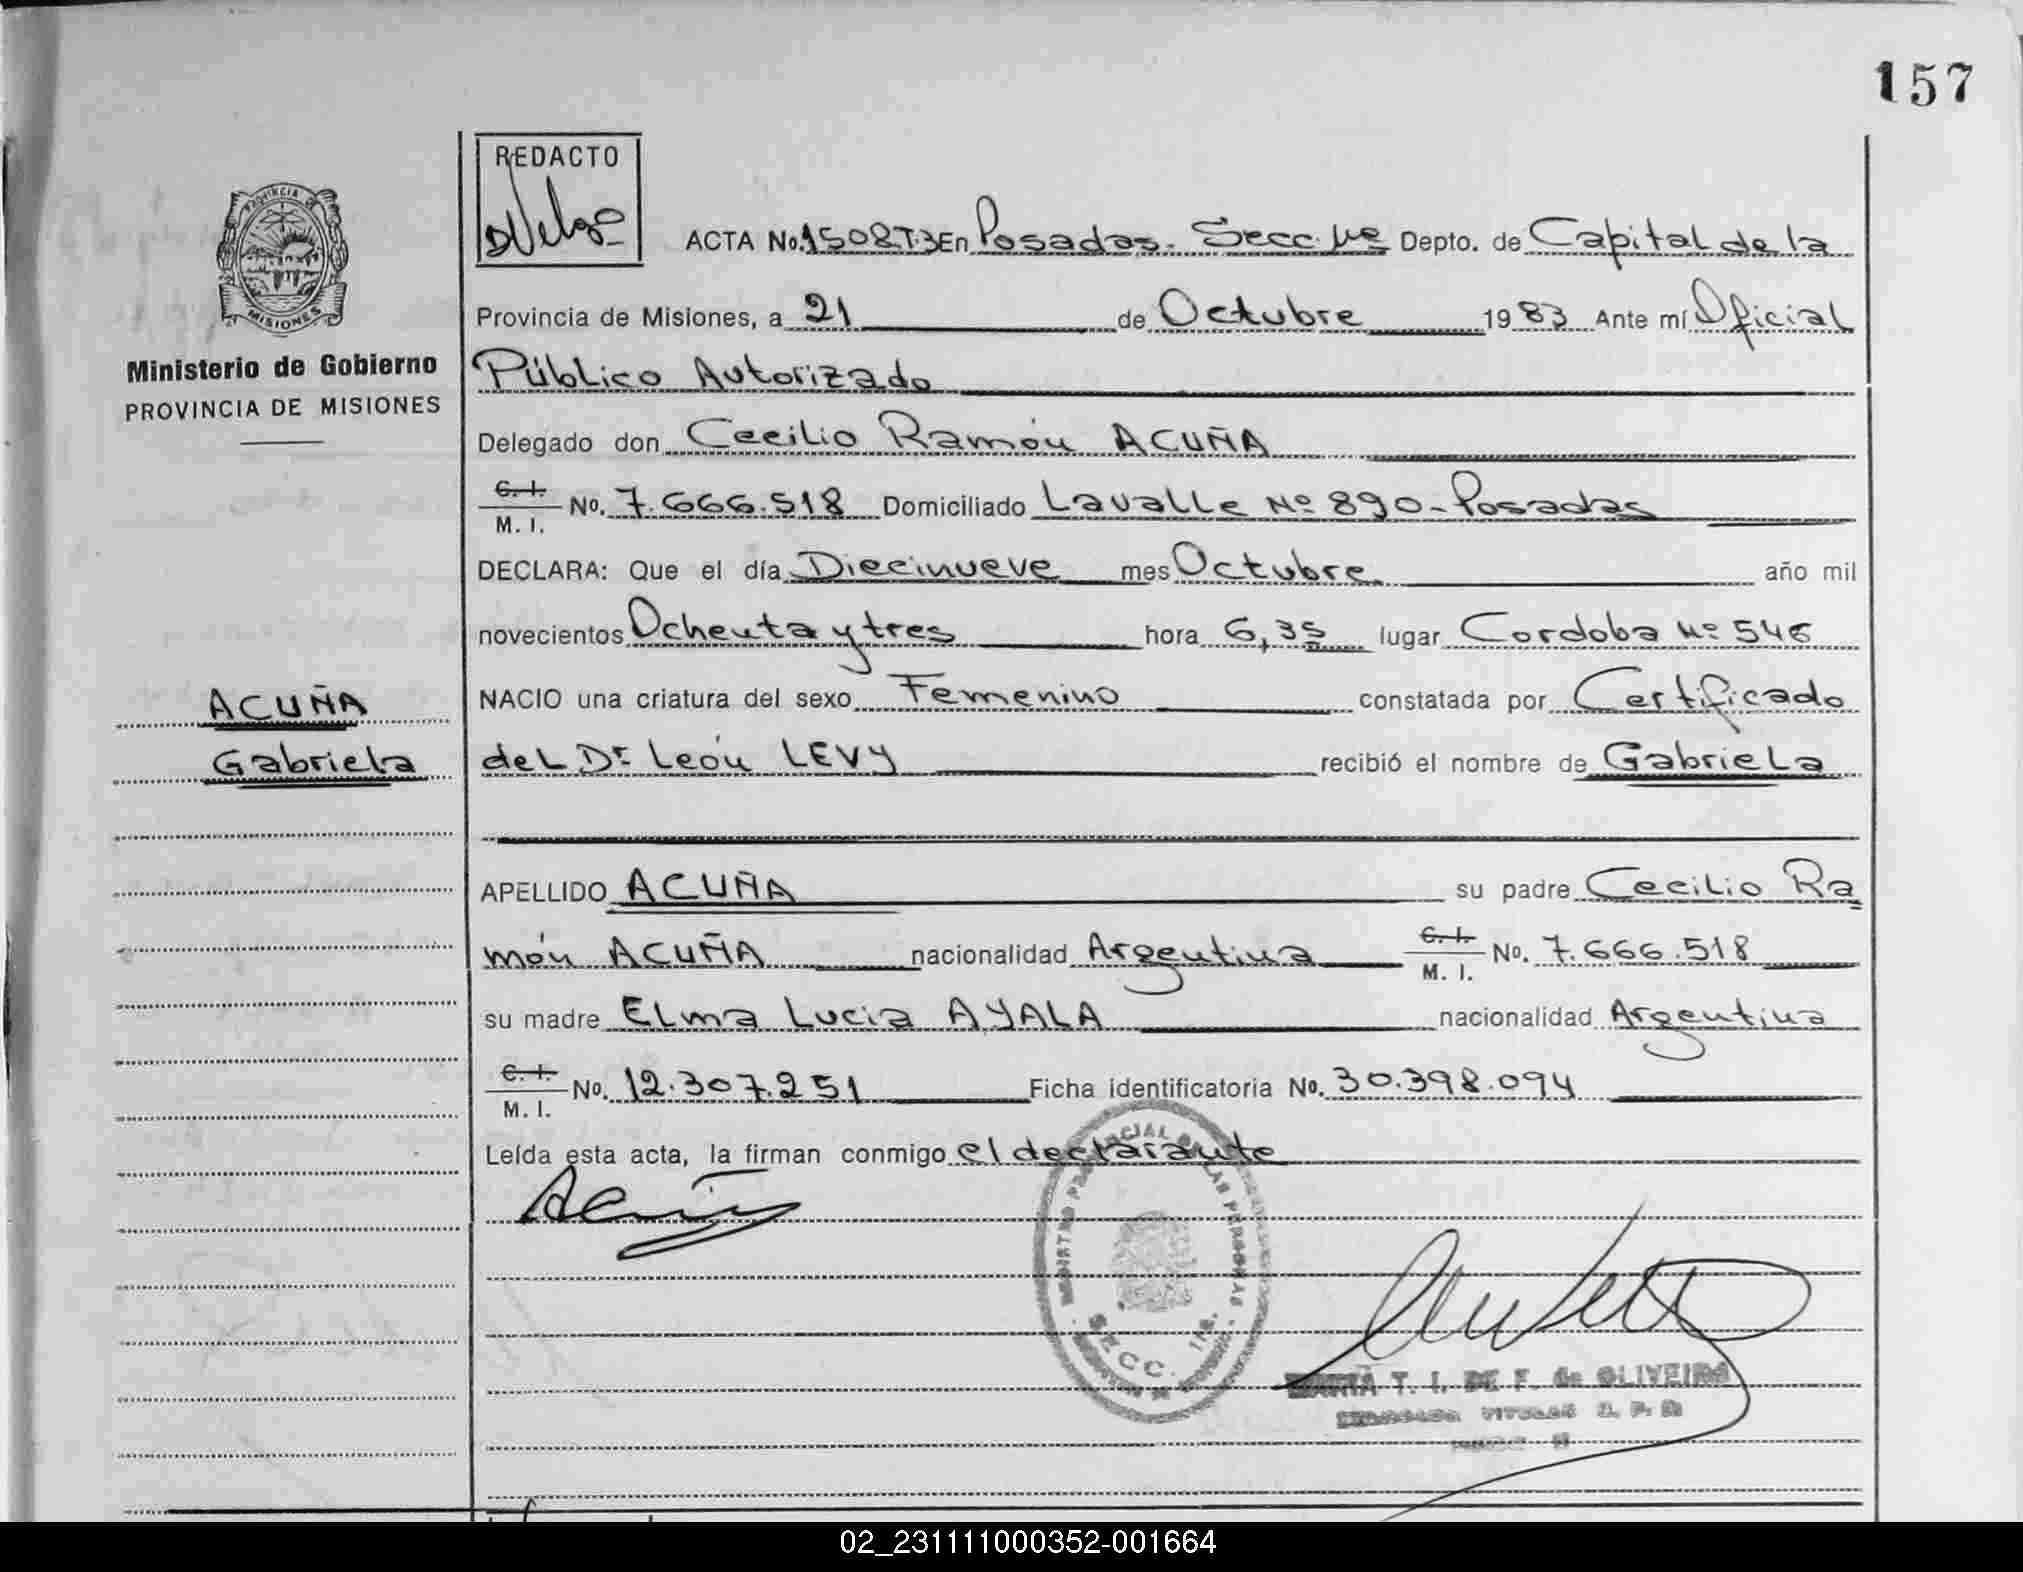 157
REDACTO
ACTA No. 1508 T.3 En Posadas. Secc. Depto. de Capital de la
PROVINCIA DE
MISIONES
Provincia de Misiones, a 21 de Octubre 1983 Ante mí Oficial
Ministerio de Gobierno
PROVINCIA DE MISIONES
Público Autorizado
Delegado don Cecilio Ramón ACUÑA
C. I.
M. I. No. 7.666.518 Domiciliado Lavalle Nº 890 - Posadas
DECLARA: Que el día Diecinueve mes Octubre año mil
novecientos Ochenta y tres hora 6,35 lugar Cordoba Nº 546
ACUÑA
NACIO una criatura del sexo Femenino constatada por Certificado
Gabriela
del Dr León LEVY recibió el nombre de Gabriela
APELLIDO ACUÑA su padre Cecilio Ra
món ACUÑA nacionalidad Argentina C. I. M. I. No. 7.666.518
su madre Elma Lucia AYALA nacionalidad Argentina
C. I.
M. I. No. 12.307.251 Ficha identificatoria No. 30.398.094
Leída esta acta, la firman conmigo el declarante
REGISTRO PROVINCIAL DE LAS PERSONAS
SECC. 1ra.
MARIA T. I. DE F. de OLIVEIRA
02_231111000352-001664